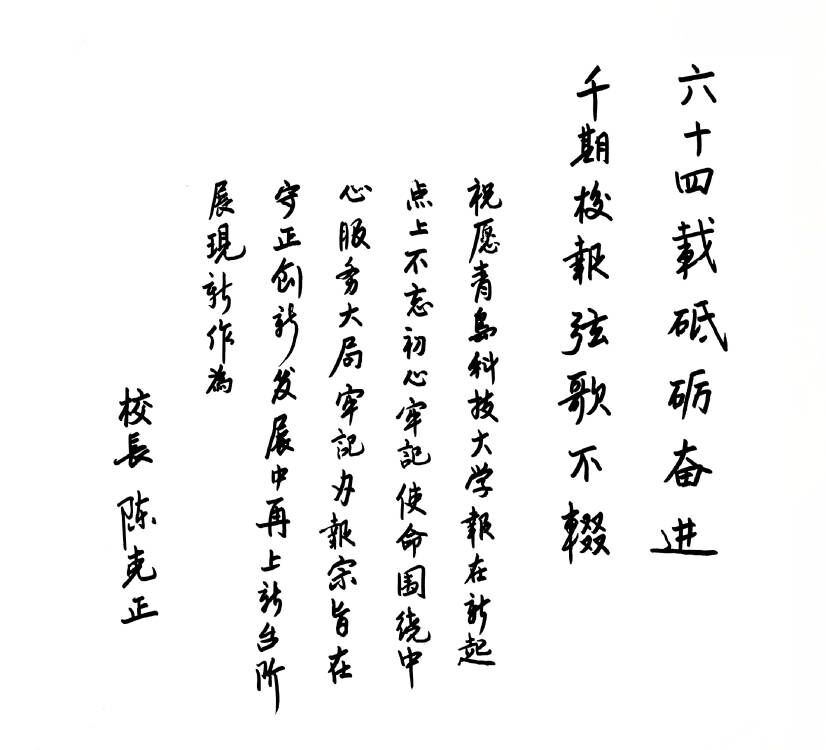 六十四載砥砺奋进
千期校報弦歌不輟
祝愿青島科技大学報在新起
点上不忘初心牢記使命围绕中
心服务大局牢記办報宗旨在
守正创新发展中再上新台阶
展現新作為
校長 陈克正